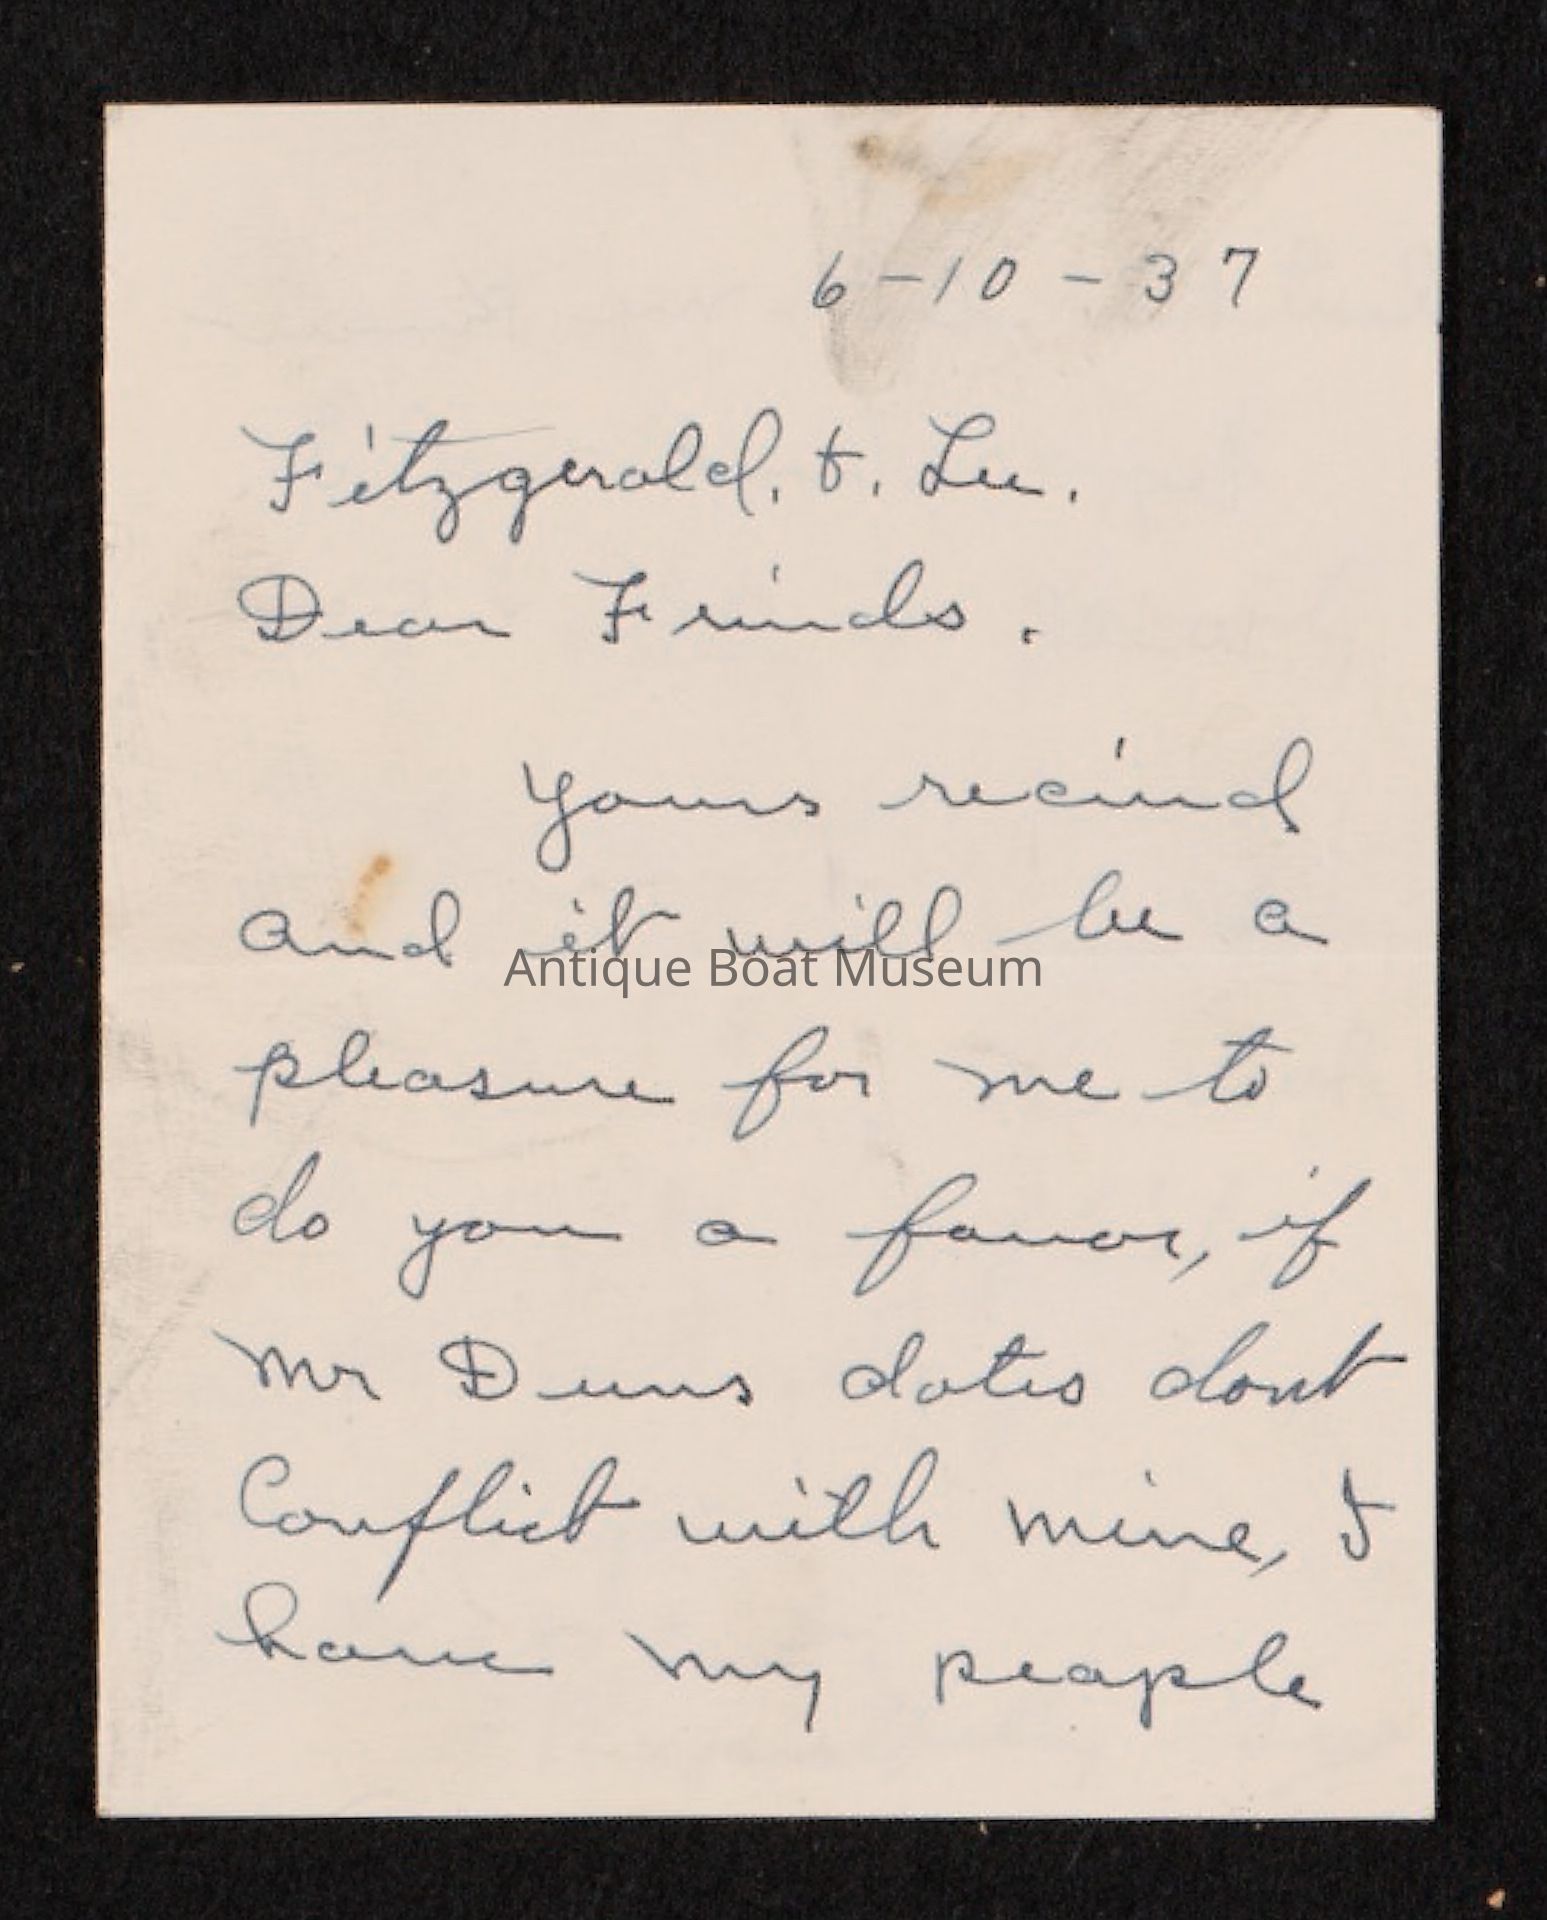 6-10-37
Fitzgerald. &. Lee.
Dear Friends.
Yours received
and it will be a
Antique Boat Museum
pleasure for me to
do you a favor, if
Mr Duns dates dont
Conflict with mine, I
have my people